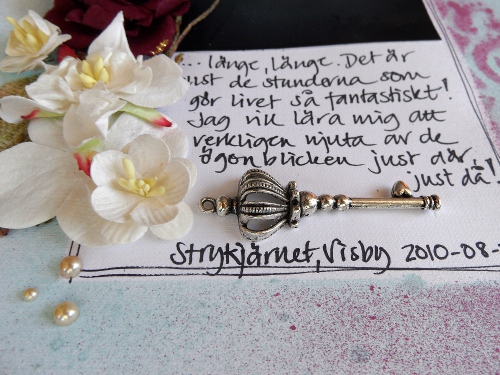 ... länge, länge. Det är
just de stunderna som
gör livet så fantastiskt!
Jag vill lära mig att
verkligen njuta av de
ögonblicken just där,
just då!
Strykjärnet, Visby 2010-08-